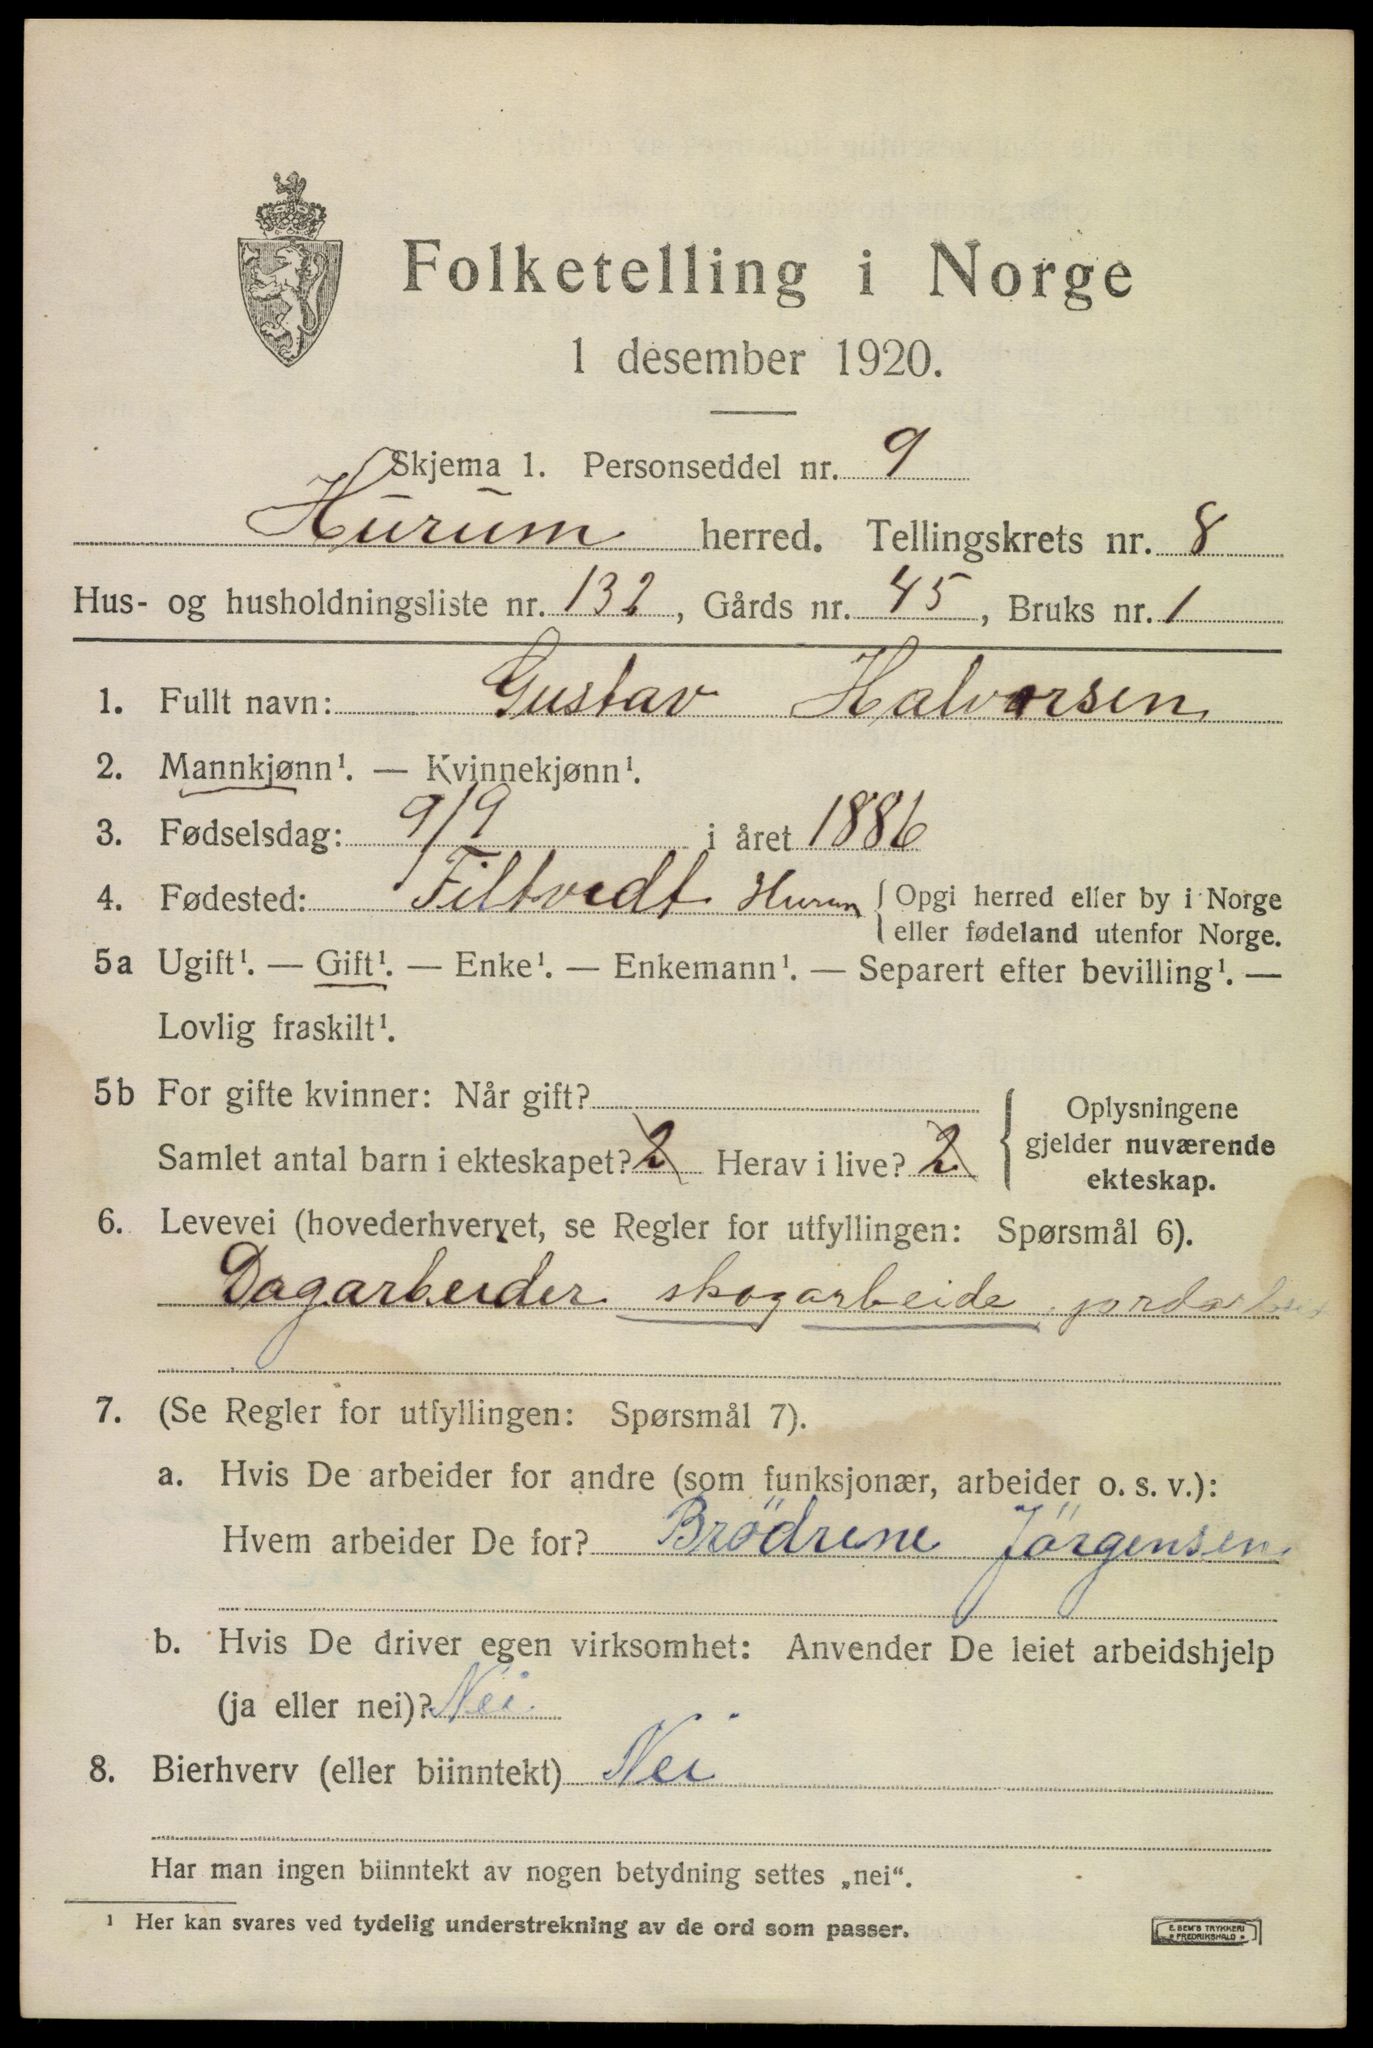 Folketelling i Norge
1 desember 1920.
Skjema 1. Personseddel nr. 9
Hurum herred. Tellingskrets nr. 8
Hus- og husholdningsliste nr. 132, Gårds nr. 45, Bruks nr. 1
1. Fullt navn: Gustav Halvorsen
2. Mannkjønn¹. — Kvinnekjønn¹.
3. Fødselsdag: 9/9 i året 1886
4. Fødested: Filtvedt Hurum { Opgi herred eller by i Norge
eller fødeland utenfor Norge.
5a Ugift¹. — Gift¹. — Enke¹. — Enkemann¹. — Separert efter bevilling¹. —
Lovlig fraskilt¹.
5b For gifte kvinner: Når gift?
Samlet antal barn i ekteskapet? 2 Herav i live? 2
Oplysningene
gjelder nuværende
ekteskap.
6. Levevei (hovederhvervet, se Regler for utfyllingen: Spørsmål 6).
Dagarbeider skogarbeide,
7. (Se Regler for utfyllingen: Spørsmål 7).
a. Hvis De arbeider for andre (som funksjonær, arbeider o. s. v.):
Hvem arbeider De for? Brödrene Jörgensen
b. Hvis De driver egen virksomhet: Anvender De leiet arbeidshjelp
(ja eller nei)? Nei
8. Bierhverv (eller biinntekt) Nei
Har man ingen biinntekt av nogen betydning settes „nei“.
¹ Her kan svares ved tydelig understrekning av de ord som passer.
E. SEM'S TRYKKERI
FREDRIKSHALD